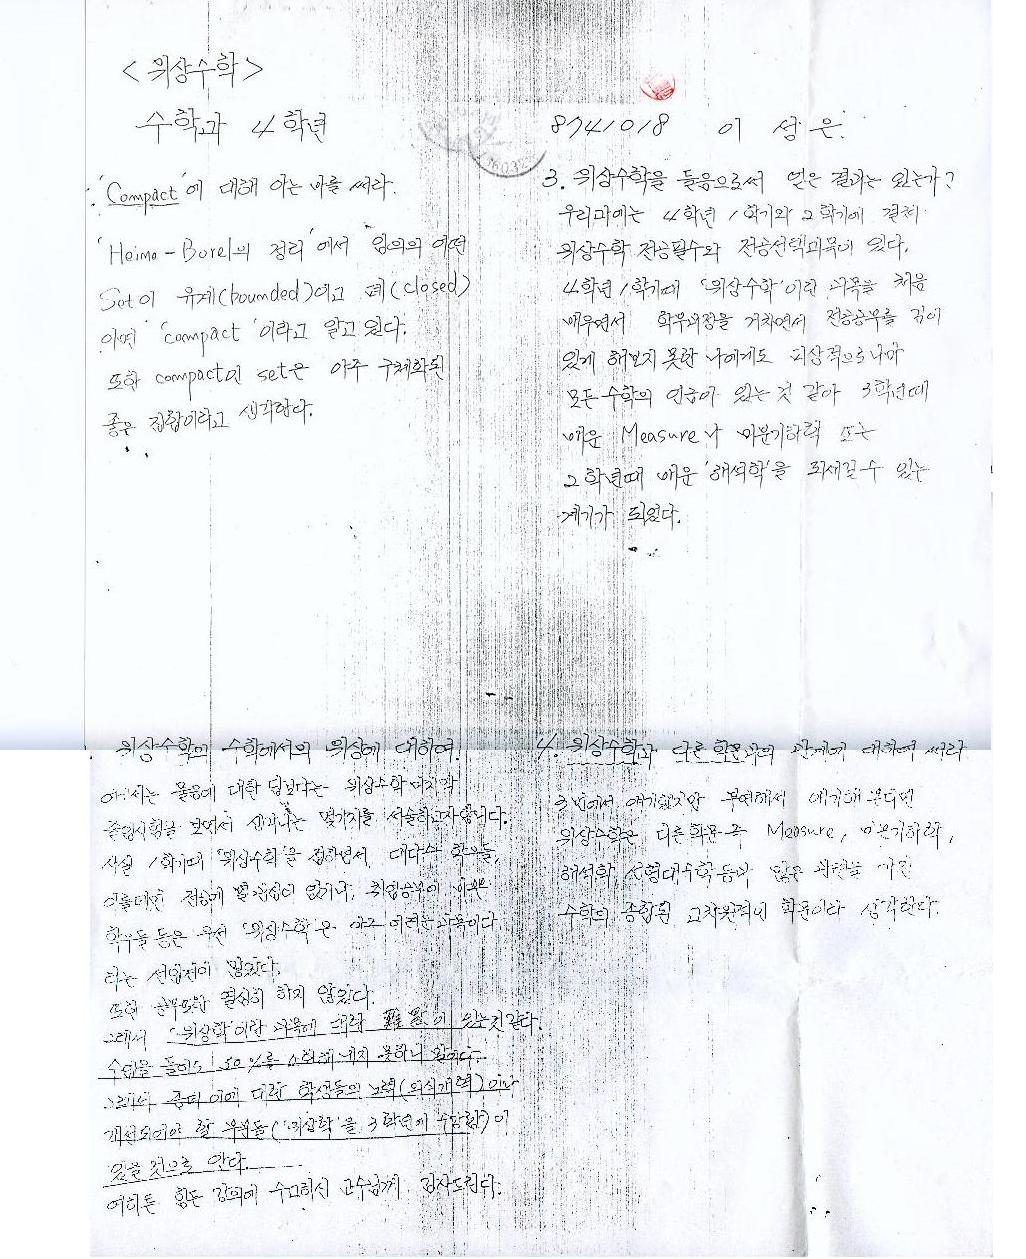 <위상수학>
수학과 4학년
8741018 이성은
'Compact'에 대해 아는 바를 써라.
'Heime-Borel의 정리'에서 임의의 어떤
Set이 유계(bounded)이고 폐(closed)
이면 'compact'이라고 알고 있다.
또한 compact인 set은 아주 구체화된
좋은 집합이라고 생각한다.
3. 위상수학을 들음으로써 얻은 결과는 있는가?
우리과에는 4학년 1학기와 2학기에 걸쳐
위상수학 전공필수와 전공선택과목이 있다.
4학년 1학기때 '위상수학'이란 과목을 처음
배우면서 학부과정을 거치면서 전공공부를 깊이
있게 해보지 못한 나에게도 피상적으로나마
모든 수학의 언급이 있는 것 같아 3학년때
배운 Measure나 미분기하학 또는
2학년때 배운 '해석학'을 되새길 수 있는
계기가 되었다.
위상수학의 수학에서의 위상에 대하여.
물음에 대한 답보다는 위상수학 마지막
졸업시험을 보면서 생각나는 몇가지를 서술하고자 합니다.
사실 1학기때 '위상수학'을 접하면서 대다수 학우들,
이를테면 전공에 별 관심이 없거나, 취업공부에
학우들 등은 우선 '위상수학'은 아주 어려운 과목이다
라는 선입견이 많았다.
또한 공부또한 열심히 하지 않았다.
그래서 '위상학'이란 과목에 대한 있는것 같다.
수업을 들어도 50%를 소화해 내지 못하니 말이다.
대한 학생들의 노력(의식개혁)이나
개선되어야 할 부분들('위상학'을 3학년에 수강함)이
있을 것으로 안다.
여하튼 힘든 강의에 수고하신 교수님께 감사드린다.
4. 위상수학과 다른 학문과의 관계에 대하여 써라
3번에서 얘기했지만 부연해서 얘기해 본다면
위상수학은 다른학문 즉 Measure, 미분기하학,
해석학, 선형대수학등과 많은 관련을 가진
수학의 종합된 고차원적인 학문이라 생각한다.